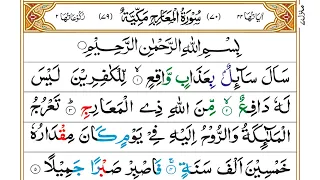 اٰيَاتُهَا ٤٤ (٧٠) سُوْرَةُ الْمَعَارِجِ مَكِّيَّةٌ (٧٩) رُكُوْعَاتُهَا ٢
بِسْمِ اللّٰهِ الرَّحْمٰنِ الرَّحِيْمِ
سَاَلَ سَآئِلٌۢ بِعَذَابٍ وَّاقِعٍ ۙ‏ ١ لِّلْكٰفِرِيْنَ لَيْسَ
لَهٗ دَافِعٌ ۙ‏ ٢ مِّنَ اللّٰهِ ذِى الْمَعَارِجِ ؕ‏ ٣ تَعْرُجُ
الْمَلٰٓئِكَةُ وَالرُّوْحُ اِلَيْهِ فِىْ يَوْمٍ كَانَ مِقْدَارُهٗ
خَمْسِيْنَ اَلْفَ سَنَةٍ ۚ‏ ٤ فَاصْبِرْ صَبْرًا جَمِيْلًا ٥